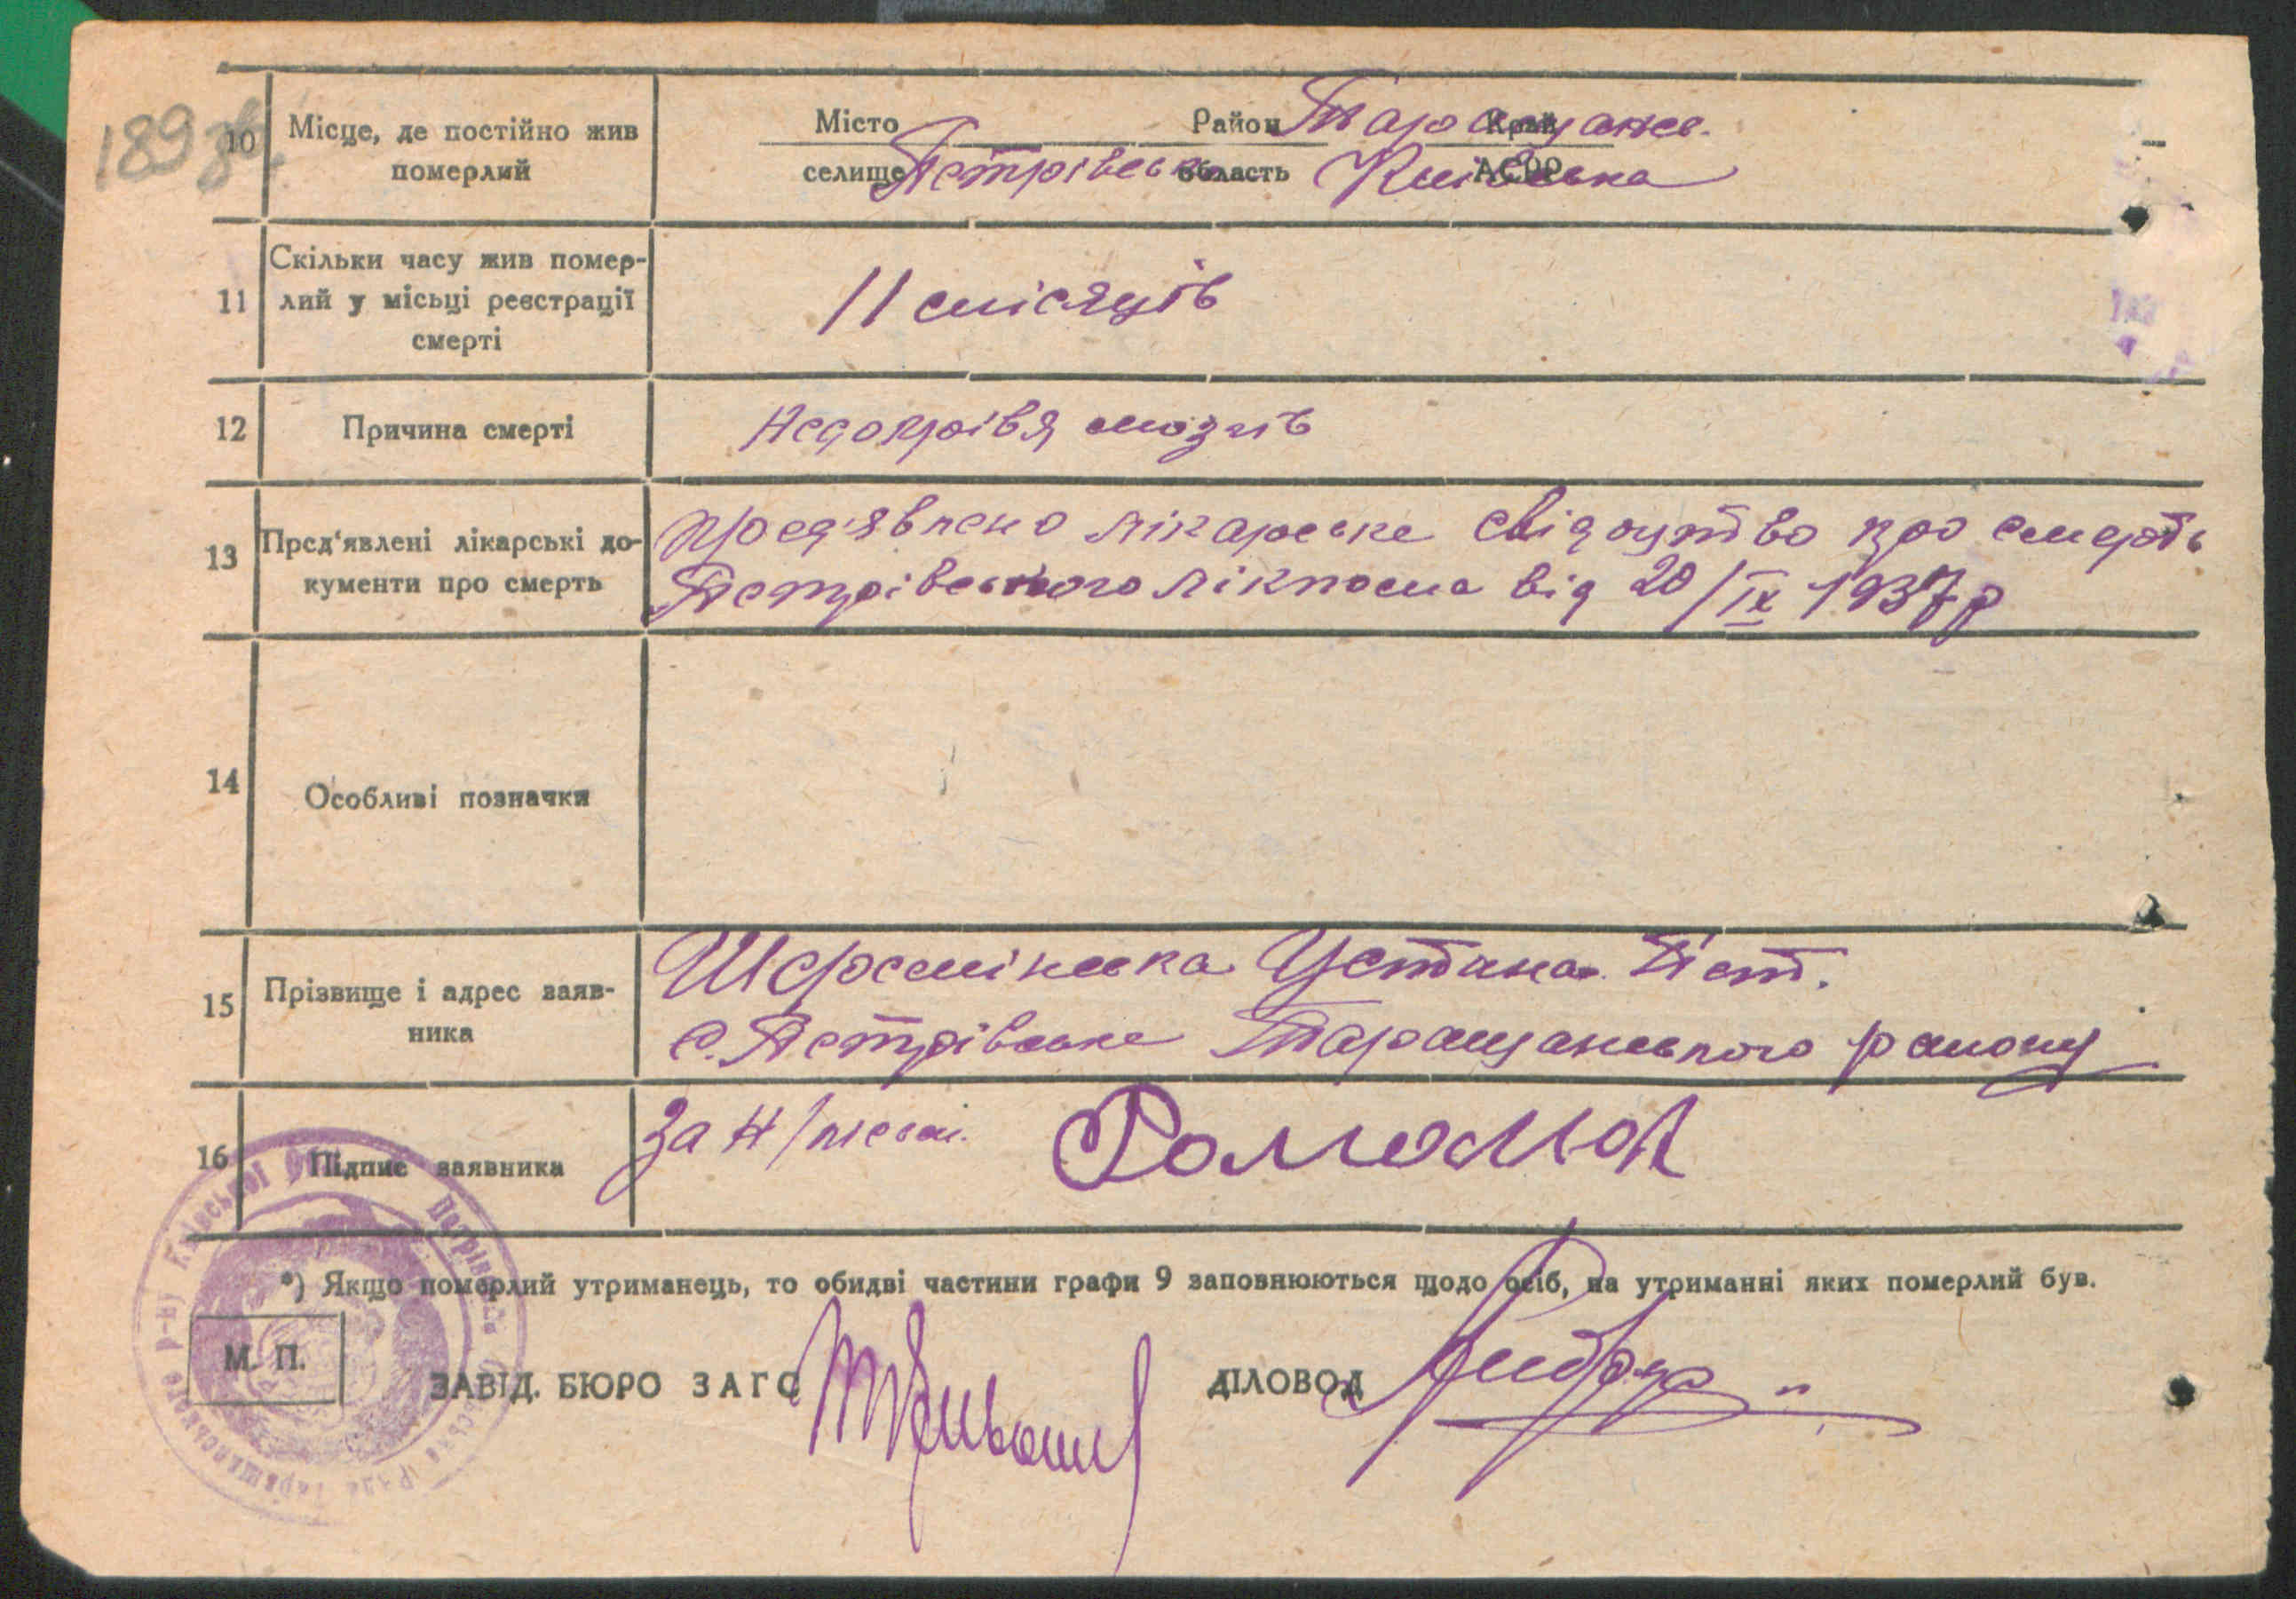 189 зв.
10 Місце, де постійно жив померлий
Місто Район Таращанськ. Край
селище Петрівське область Київська АСРР
11 Скільки часу жив помер-
лий у місьці реєстрації
смерті
11 місяців
12 Причина смерті
Недокрівя мозгів
13 Пред'явлені лікарські до-
кументи про смерть
пред'явлено лікарське свідоцтво про смерть
Петрівського лікпома від 20/IX 1937 р
14 Особливі позначки
15 Прізвище і адрес заяв-
ника
Устина Пет.
с. Петрівське Таращанського району
16 Підпис заявника
За н/писм.
*) Якщо померлий утриманець, то обидві частини графи 9 заповнюються щодо осіб, на утриманні яких померлий був.
М. П.
ЗАВІД. БЮРО ЗАГС
ДІЛОВОД